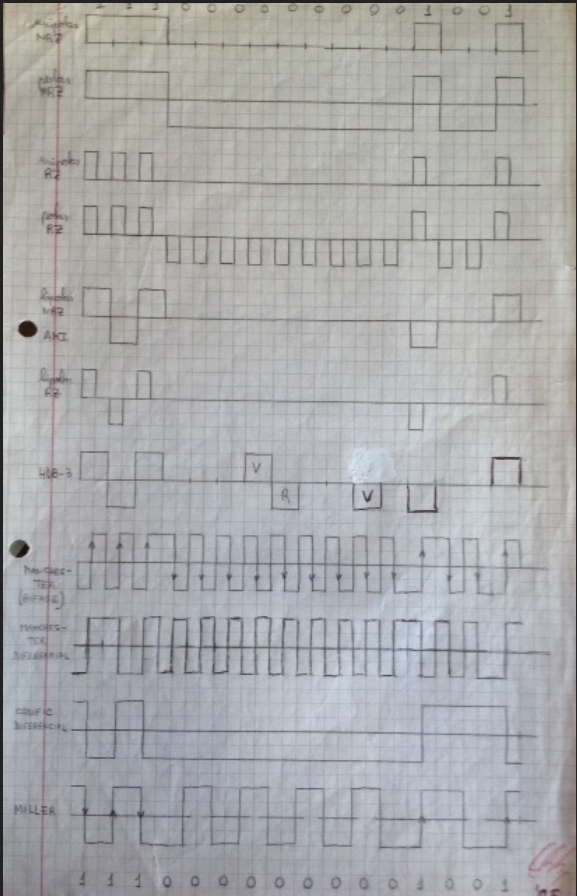 1 1 1 0 0 0 0 0 0 0 0 0 1 0 0 1
unipolar
NRZ
polar
NRZ
unipolar
RZ
polar
RZ
bipolar
NRZ
AMI
bipolar
RZ
HDB-3
V
R
V
MANCHES-
TER
(BIFASE)
MANCHES-
TER
DIFERENCIAL
CODIFIC
DIFERENCIAL
MILLER
1 1 1 0 0 0 0 0 0 0 0 0 1 0 0 1